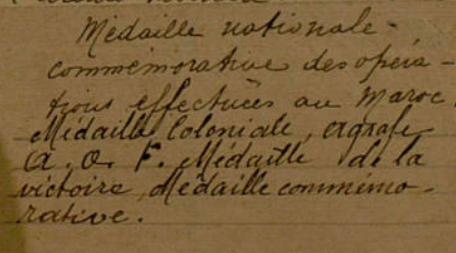 Médaille nationale
commémorative des opéra-
tions effectuées au Maroc.
Médaille Coloniale, agrafe
A. O. F. Médaille de la
victoire, Médaille commémo-
rative.